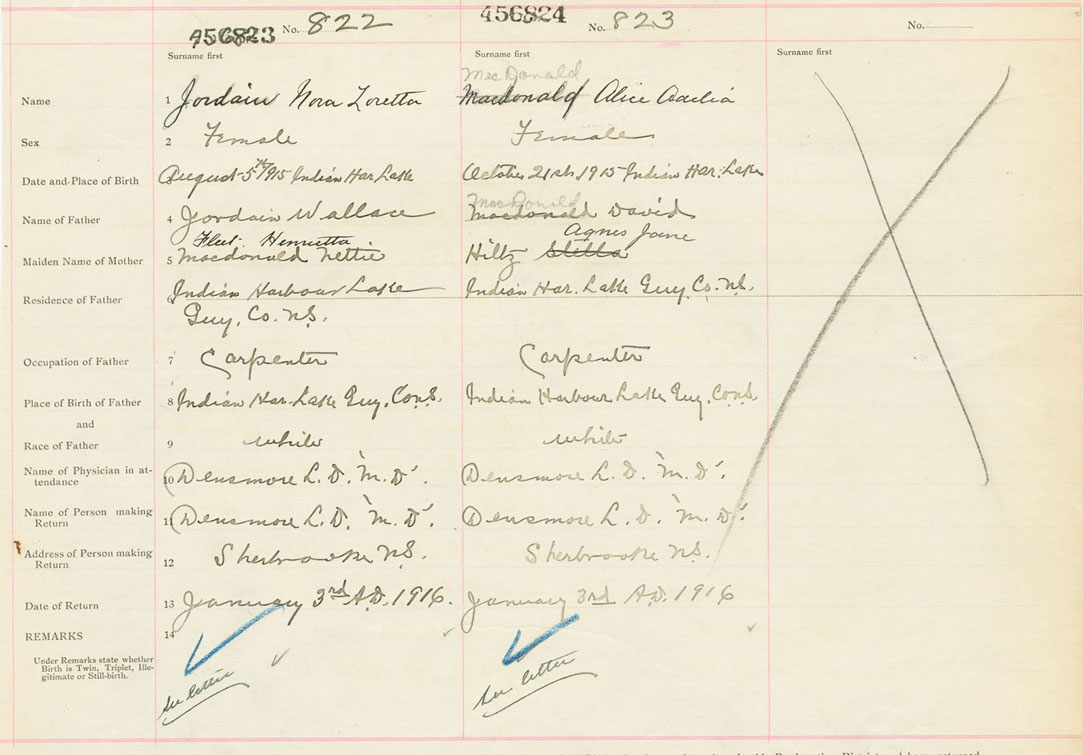 456823 No. 822
456824 No. 823
No.
Surname first
Surname first
Surname first
Name 1 Jordain Nora Loretta
MacDonald
Macdonald Alice
Sex 2 Female Female
Date and Place of Birth August 5th 1915 Indian Har. Lake October 21st. 1915 Indian Har. Lake
MacDonald
Name of Father 4 Jordain Wallace Macdonald David
Fleet Henrietta Agnes Jane
Maiden Name of Mother 5 Macdonald Nettie Hiltz Stella
Residence of Father Indian Harbour Lake Indian Har. Lake Guy. Co. N.S.
Guy. Co. N.S.
Occupation of Father 7 Carpenter Carpenter
Place of Birth of Father 8 Indian Har. Lake Guy. Co N.S. Indian Harbour Lake Guy. Co N.S.
and
Race of Father 9 white white
Name of Physician in at-
tendance 10 Densmore L. D. "M. D". Densmore L. D. "M. D".
Name of Person making
Return 11 Densmore L. D. "M. D". Densmore L. D. "M. D".
Address of Person making
Return 12 Sherbrooke N.S. Sherbrooke N.S.
Date of Return 13 January 3rd A.D. 1916. January 3rd A.D. 1916
REMARKS 14
Under Remarks state whether
Birth is Twin, Triplet, Ille-
gitimate or Still-birth.
See letter See letter